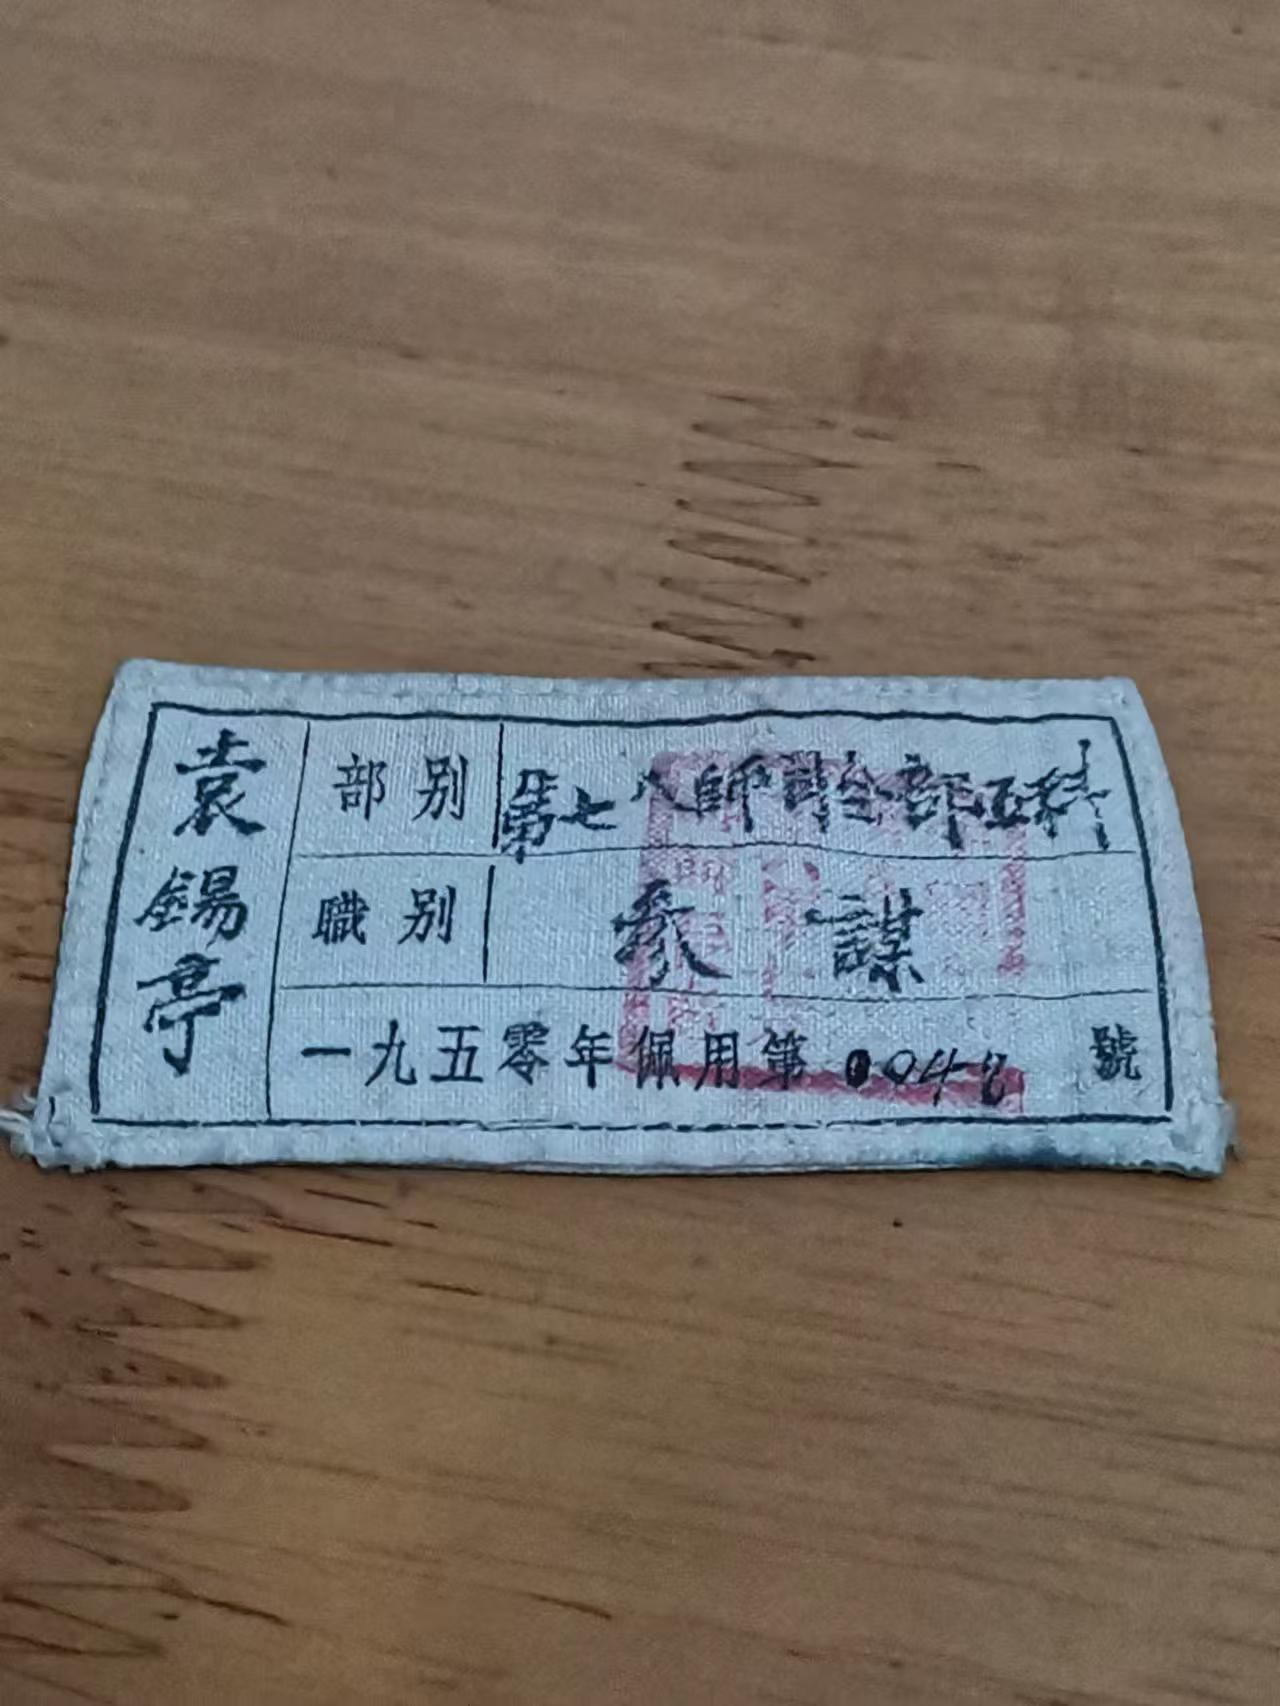 袁錫亭
部别 第七八師司令部五科
職别 參謀
一九五零年佩用第 004 號